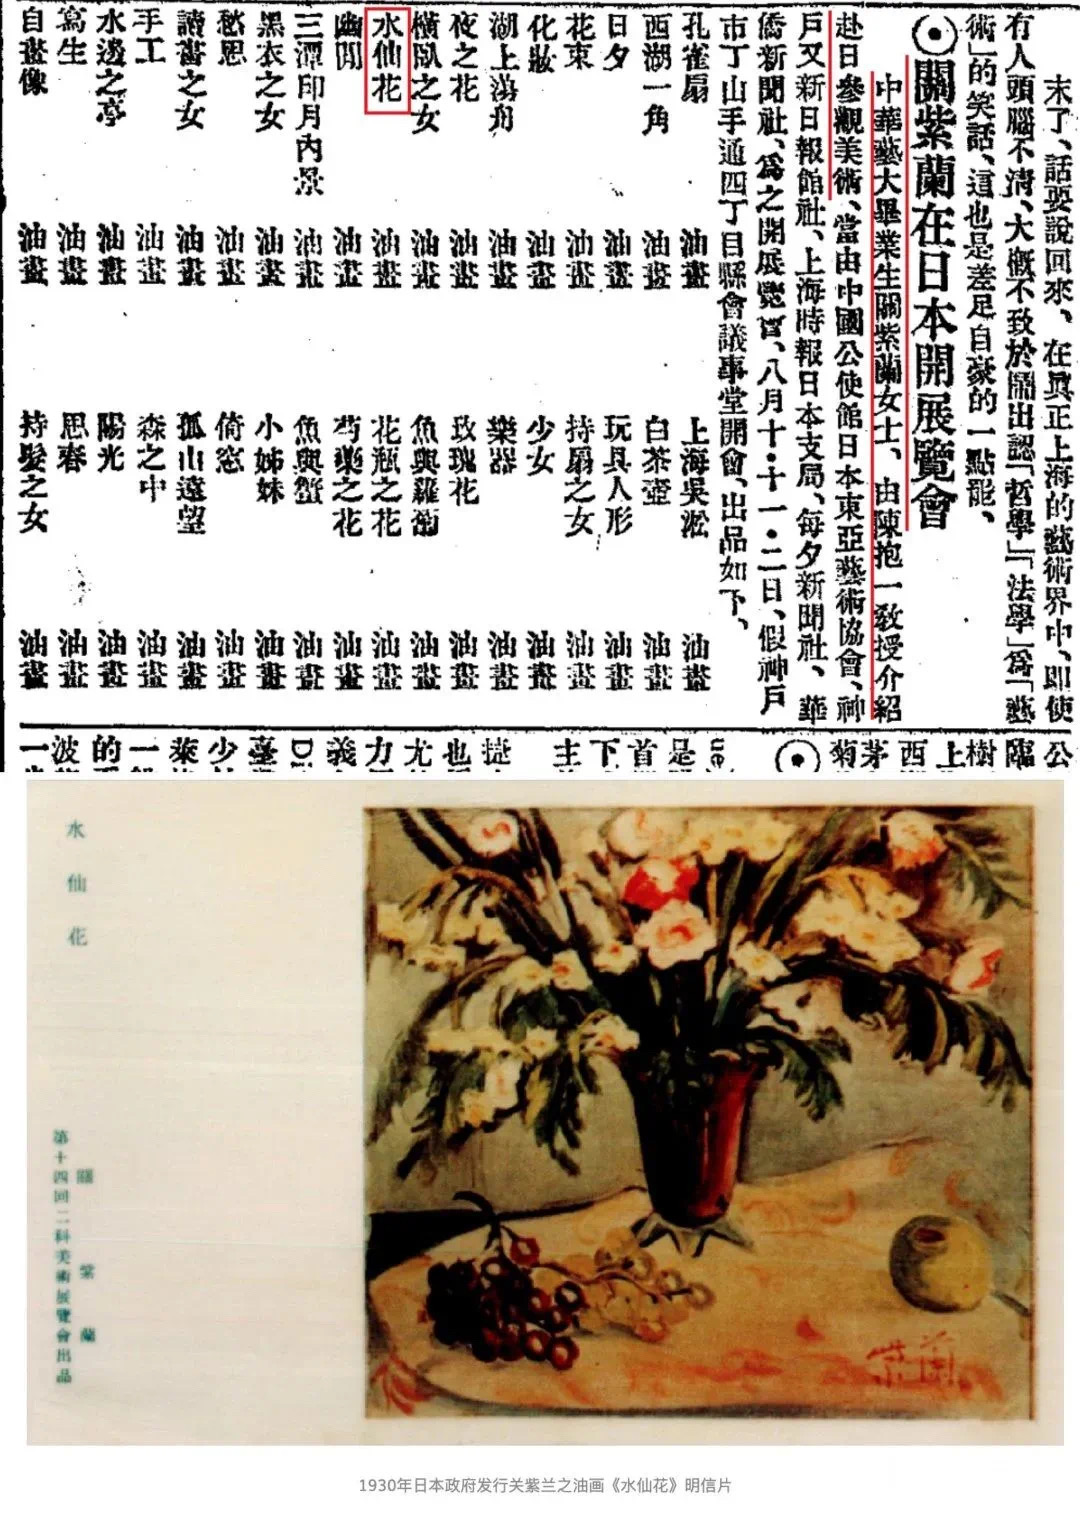 末了、話要說回來、在眞正上海的藝術界中、卽使
有人頭腦不淸、大概不致於鬧出認「哲學」「法學」爲「藝
術」的笑話、這也是差足自豪的一點罷、
⊙關紫蘭在日本開展覽會
中華藝大畢業生關紫蘭女士、由陳抱一敎授介紹
赴日參觀美術、當由中國公使館日本東亞藝術協會、神
戶又新日報館社、上海時報日本支局、每夕新聞社、華
僑新聞社、爲之開展覽會、八月十・十一・二日、假神戶
市丁山手通四丁目縣會議事堂開會、出品如下、
孔雀扇 油畫 上海吳淞 油畫
西湖一角 油畫 白茶壺 油畫
日夕 油畫 玩具人形 油畫
花束 油畫 持扇之女 油畫
化妝 油畫 少女 油畫
湖上 油畫 樂器 油畫
夜之花 油畫 玫瑰花 油畫
橫臥之女 油畫 魚與蘿蔔 油畫
水仙花 油畫 花瓶之花 油畫
幽閒 油畫 芍藥之花 油畫
三潭印月內景 油畫 魚與蟹 油畫
黑衣之女 油畫 小姊妹 油畫
愁思 油畫 倚窓 油畫
讀書之女 油畫 孤山遠望 油畫
手工 油畫 森之中 油畫
水邊之亭 油畫 陽光 油畫
寫生 油畫 思春 油畫
自畫像 油畫 持髮之女 油畫
公
臨
樹
上
西
茅
菊
⊙
是
首
下
主
捷
也
尤
力
義
臺
少
萊
一
的
波
一
水仙花
關紫蘭
第十四回二科美術展覽會出品
紫蘭
1930年日本政府发行关紫兰之油画《水仙花》明信片